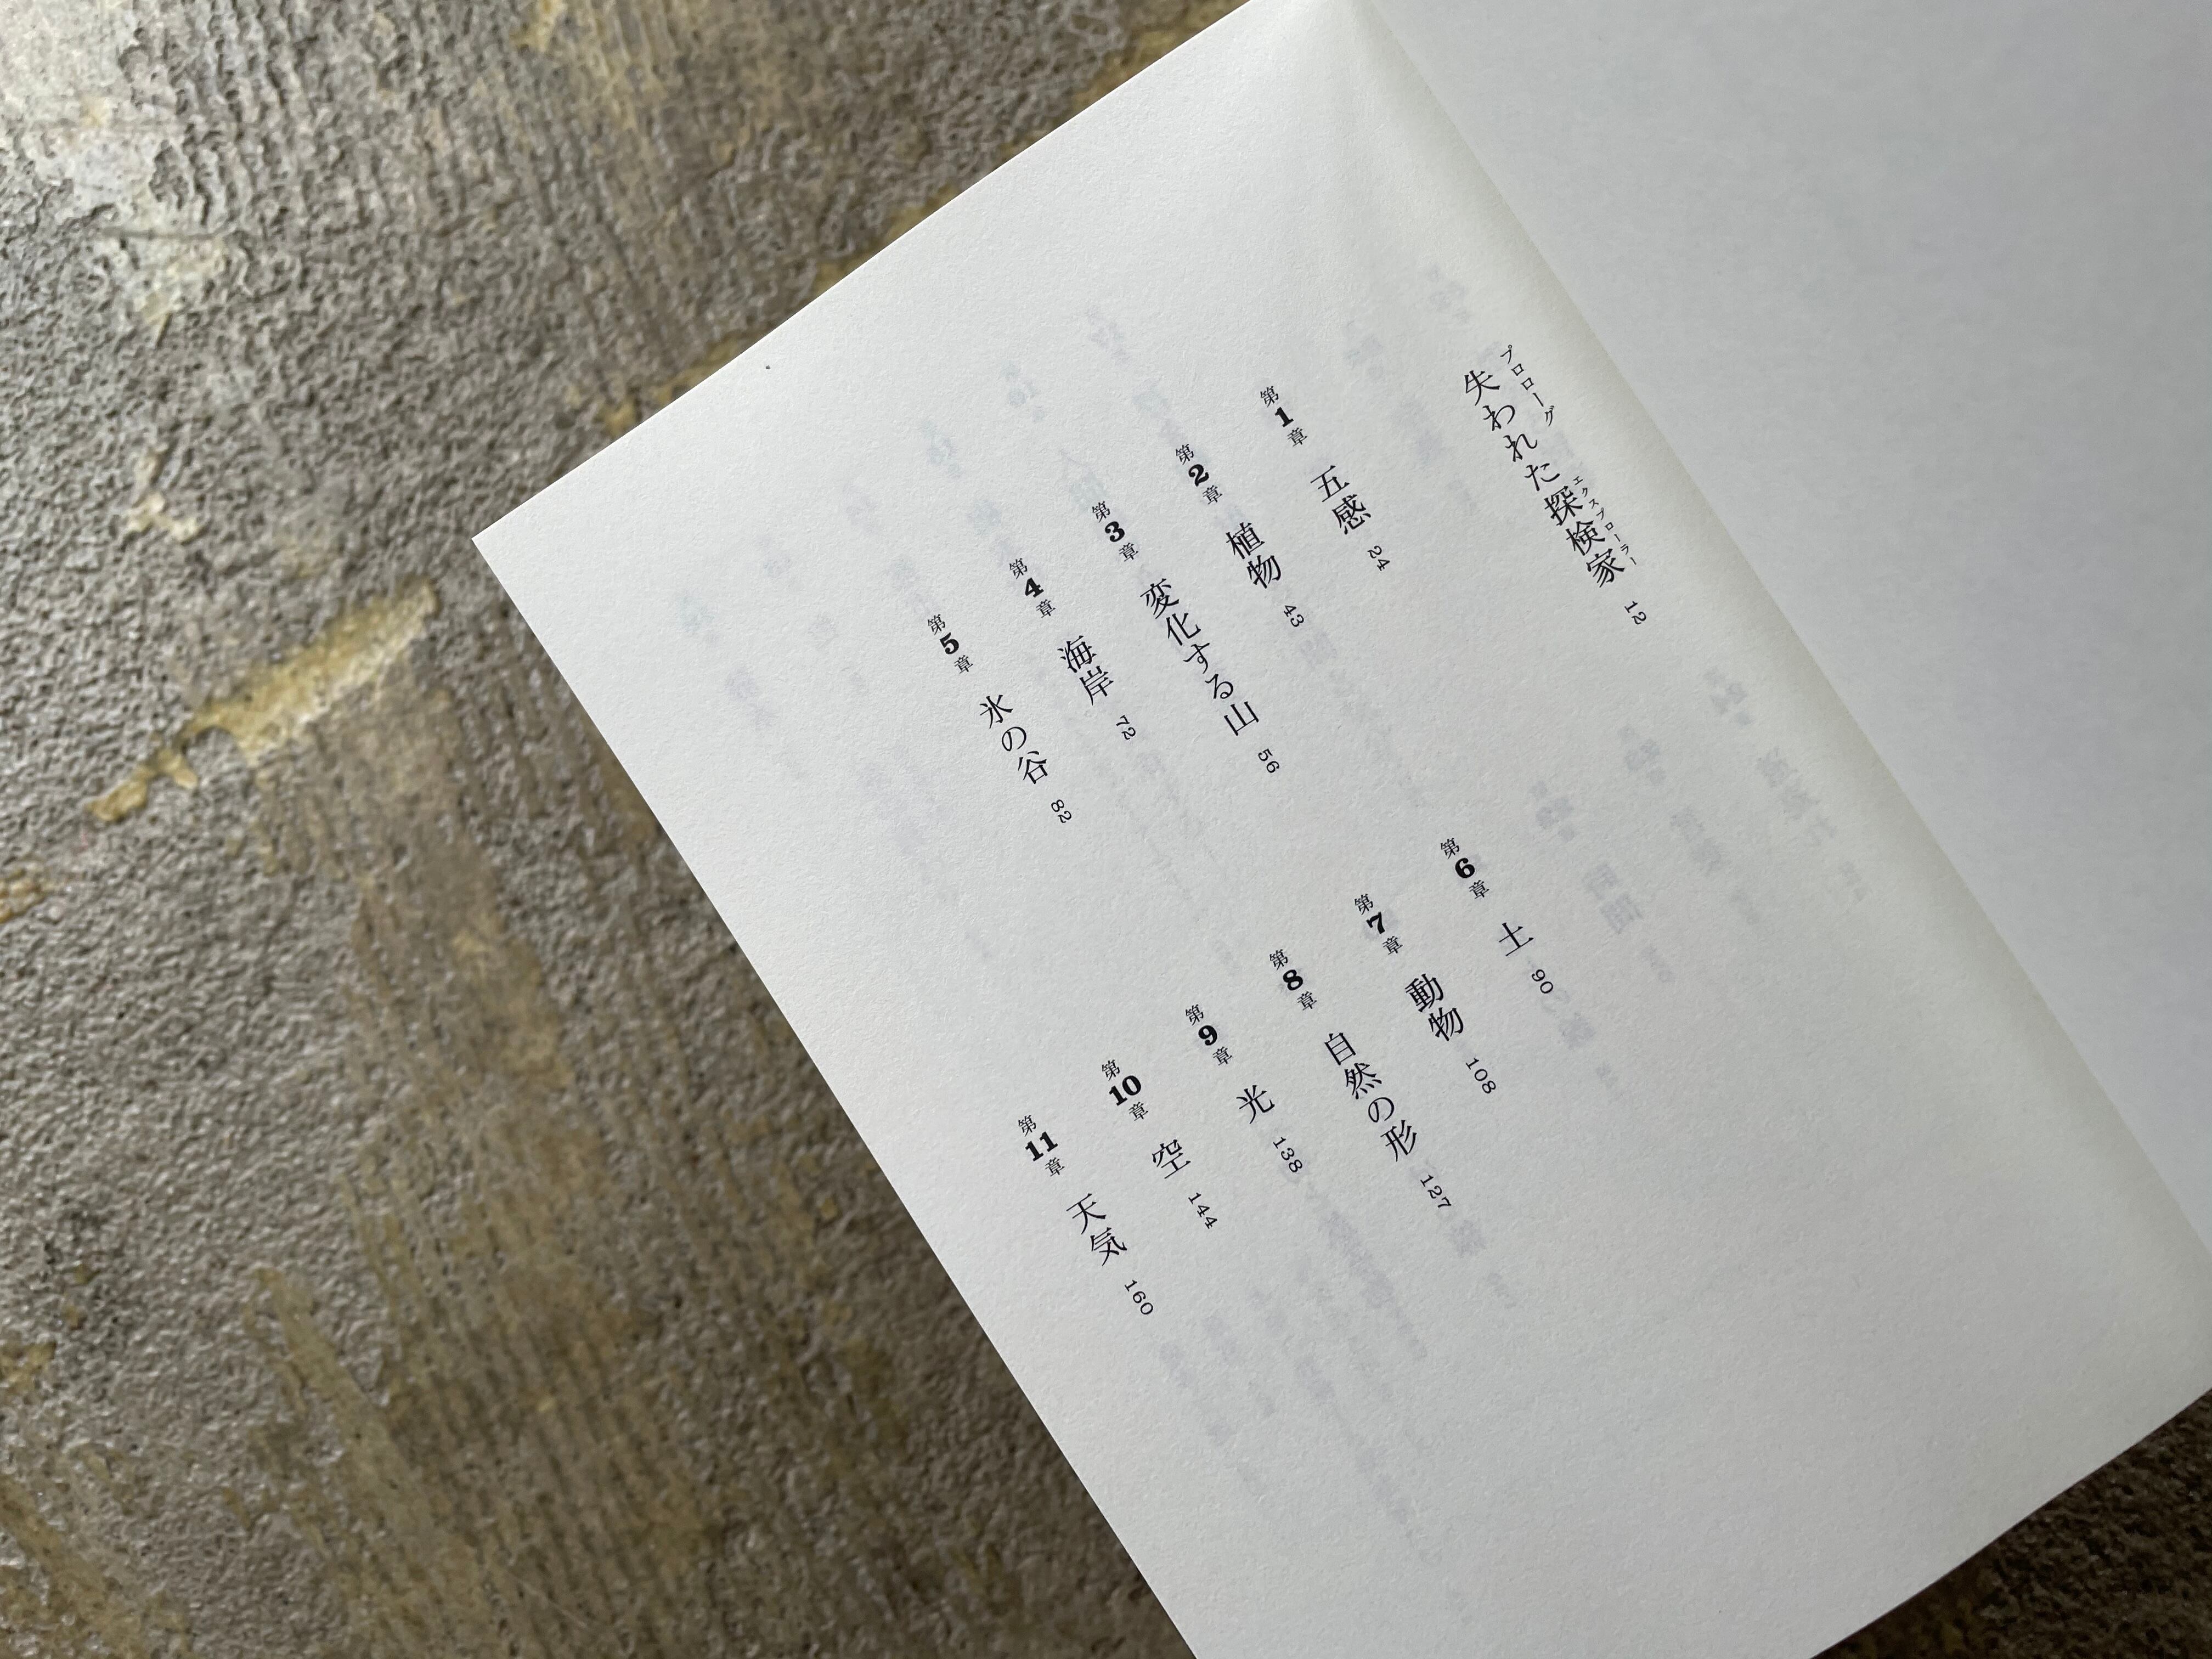 プロローグ
失われた探検家 12
エクスプローラー
第1章 五感 24
第2章 植物 43
第3章 変化する山 56
第4章 海岸 72
第5章 氷の谷 82
第6章 土 90
第7章 動物 108
第8章 自然の形 127
第9章 光 138
第10章 空 144
第11章 天気 160